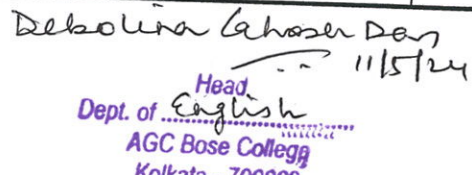 Debolina Lahoser Das
11/5/24
Head
Dept. of English
AGC Bose College
Kolkata - 700